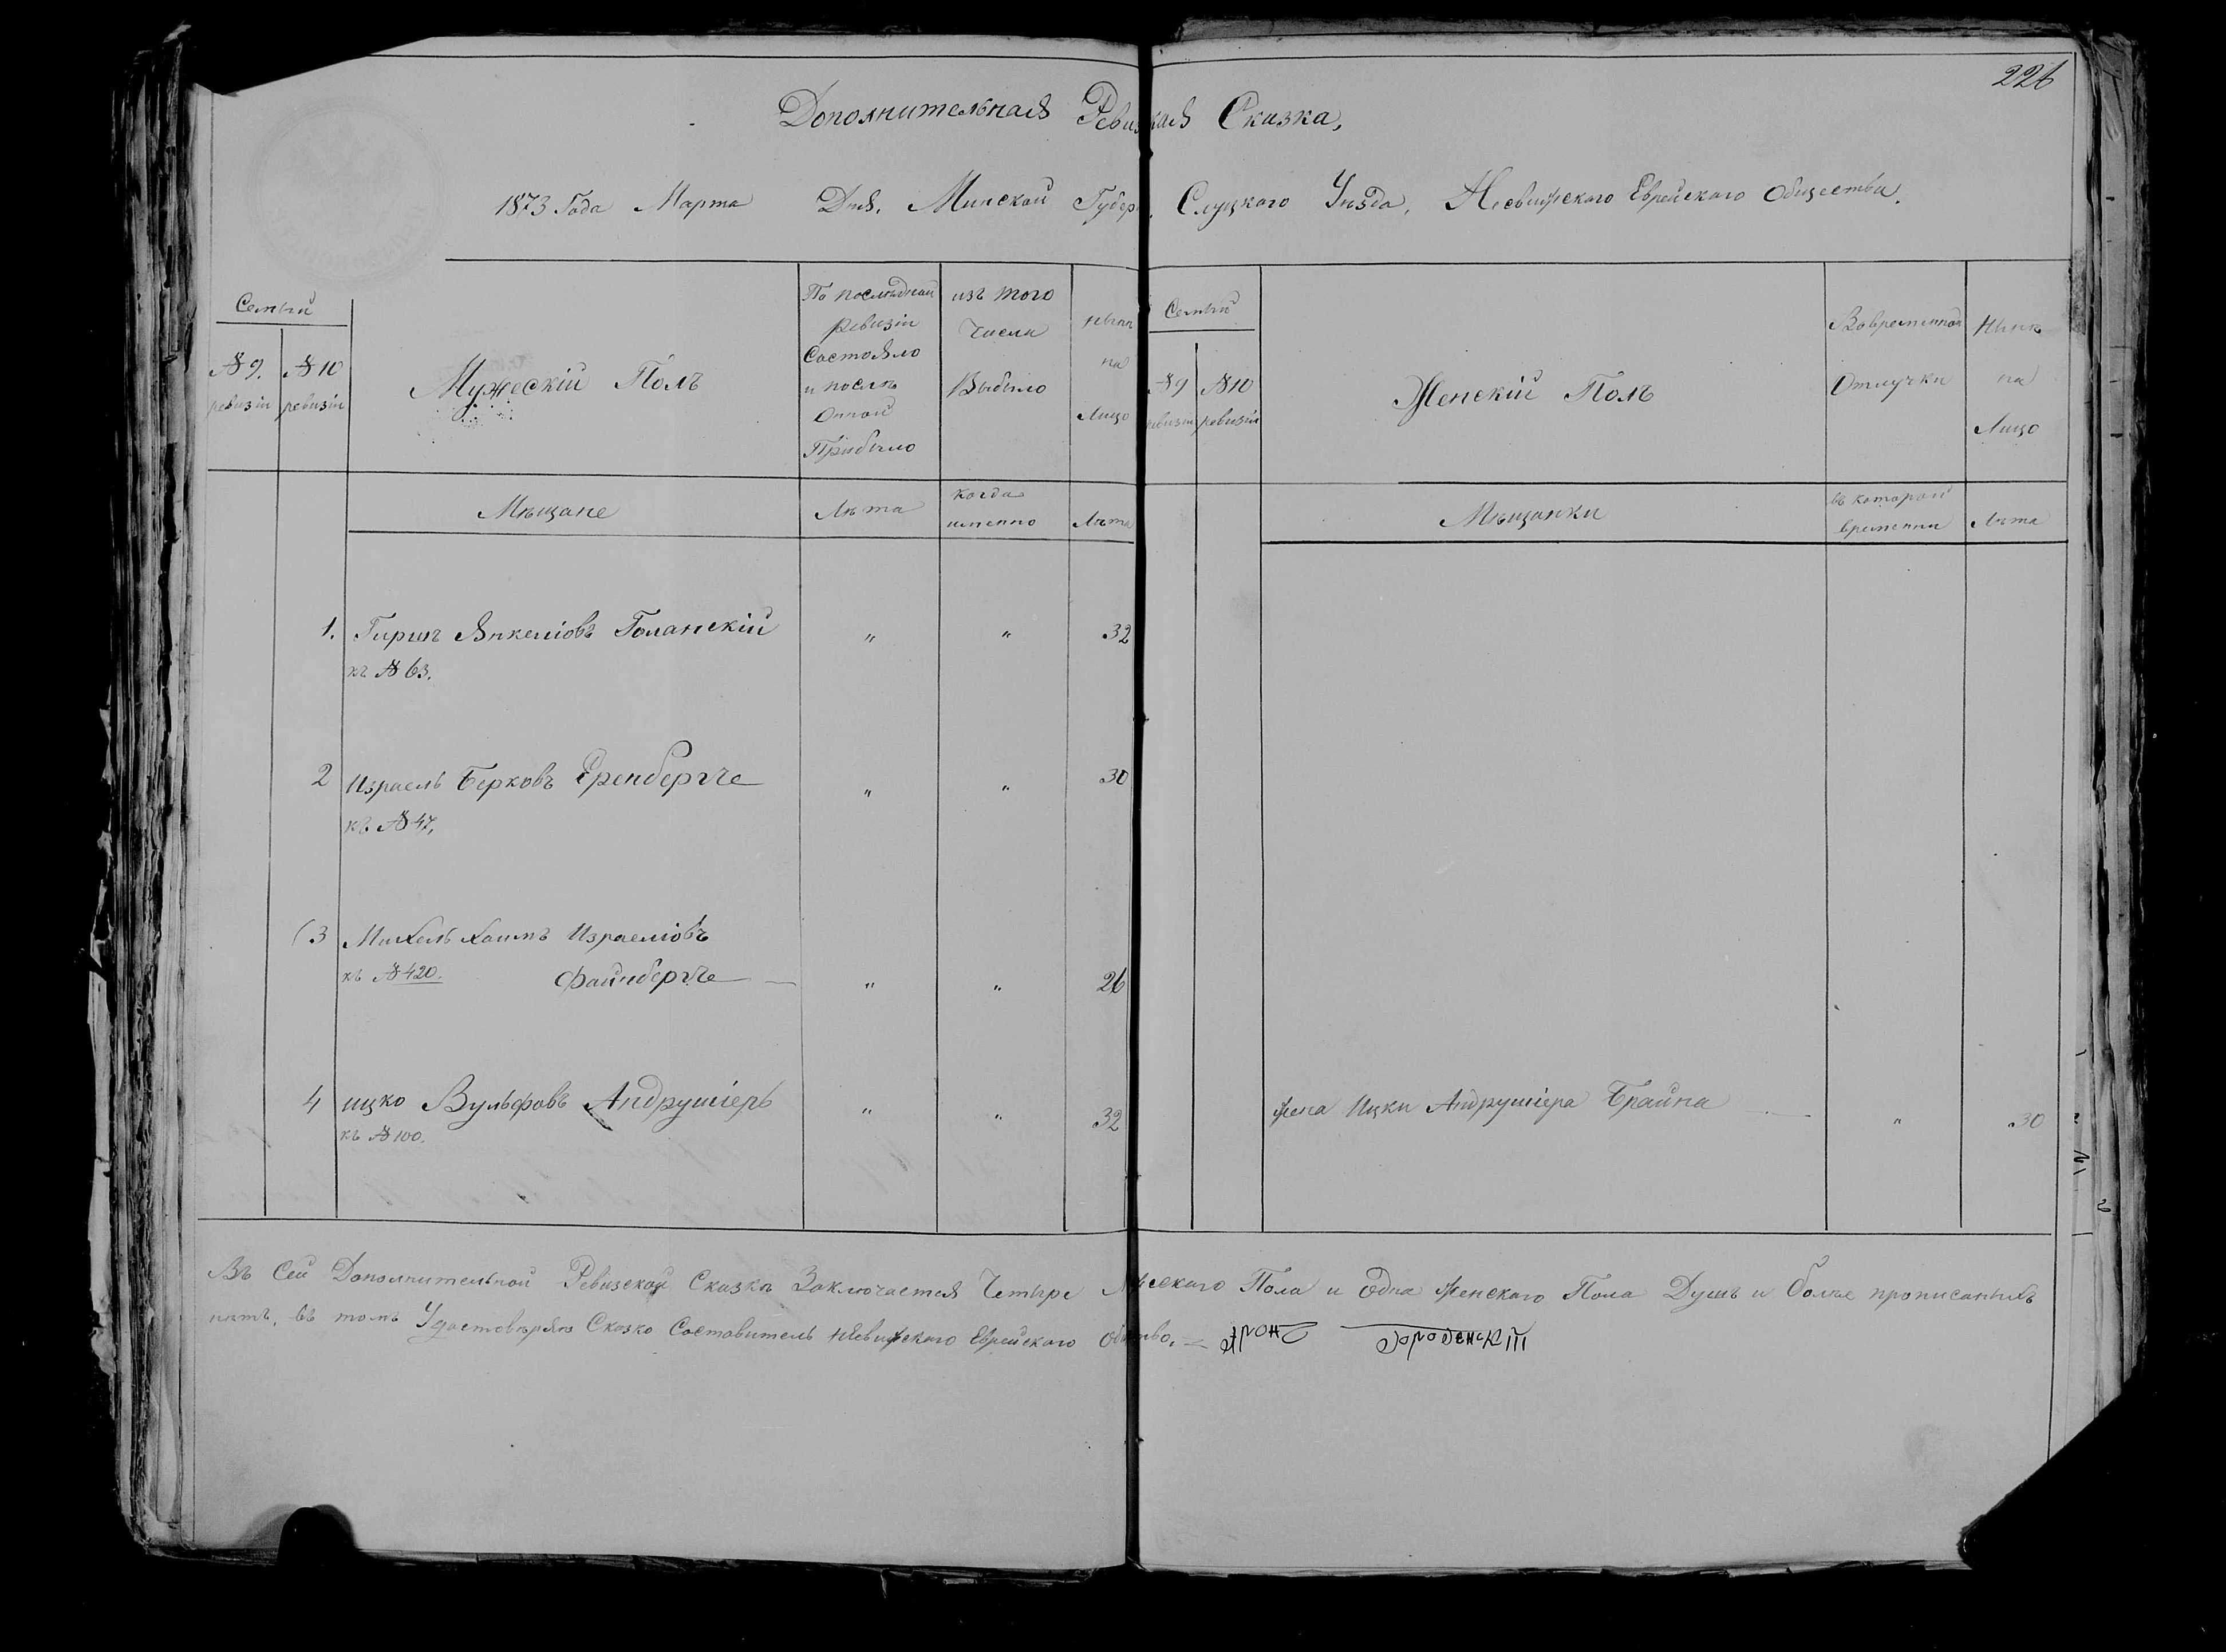 226
Дополнительная Ревизкая Сказка,
1873 Года Марта Дня, Минской Губер. Слуцкого Уѣзда, Несвижского Еврейского Общества.
Семьи
№ 9. ревизіи
№ 10 ревизіи
Мужескій Полъ
По послѣдной
ревизіи
Состояло
и послѣ
Оной
Прибыло
изъ того
Числа
Выбыло
на
Лицо
Семьи
№ 9 ревизіи
№ 10 ревизіи
Женскій Полъ
Вовременной
Отлучки
Нынѣ
на
Лицо
Мѣщане
Лѣта
когда
именно
Лѣта
Мѣщанки
въ которой
времени
Лѣта
1. Гиршъ Янкеліовъ Голанскій " " 32
къ № 63.
2 Израель Берковъ Еренбергче " " 30
къ № 47,
3 Михель Хаимъ Израеліовъ
къ № 420. Файнбергче — " " 26
4 ицко Вульфовъ Андрушіеръ " " 32
къ № 100.
жена Ицки Андрушіера Брайна " 30
Въ Сей Дополнительной Ревизской Сказкѣ Заключается Четыре Мужеского Пола и Одна Женского Пола Душъ и болѣе прописаныхъ
нѣтъ, въ томъ Удостовѣряю Сказко Составитель Невижского Еврейского Общество. =
Городенскій